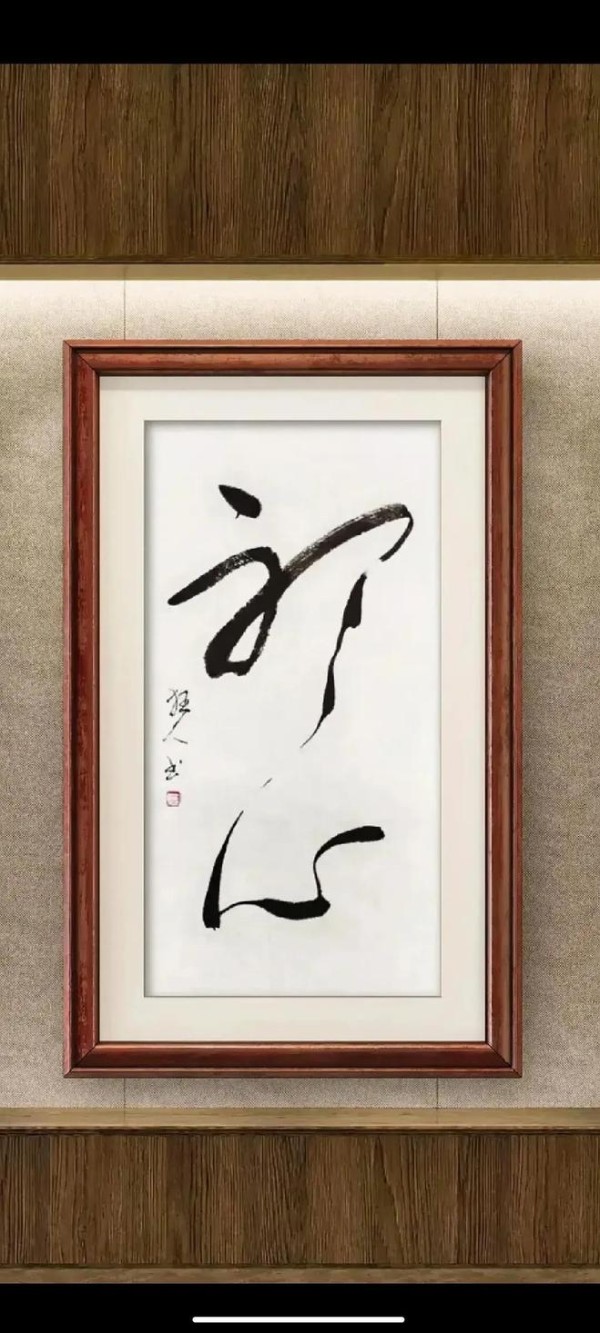 初心
狂人书